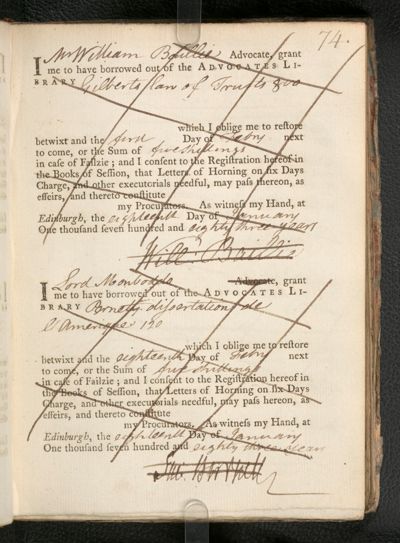 74.
I Mr William Baillie Advocate, grant
me to have borrowed out of the ADVOCATES LI-
BRARY Gilberts Law of Trusts 800
which I oblige me to restore
betwixt and the first Day of Febry next
to come, or the Sum of five shillings
in case of Failzie; and I consent to the Registration hereof in
the Books of Session, that Letters of Horning on six Days
Charge, and other executorials needful, may pass hereon, as
effeirs, and thereto constitute
my Procurators. As witness my Hand, at
Edinburgh, the eighteenth Day of January
One thousand seven hundred and eighty three years
Will: Baillie
I Lord Monboddo Advocate, grant
me to have borrowed out of the ADVOCATES LI-
BRARY dissertation de
L'Amerique 120
which I oblige me to restore
betwixt and the eighteenth Day of Febry next
to come, or the Sum of five shillings
in case of Failzie; and I consent to the Registration hereof in
the Books of Session, that Letters of Horning on six Days
Charge, and other executorials needful, may pass hereon, as
effeirs, and thereto constitute
my Procurators. As witness my Hand, at
Edinburgh, the eighteenth Day of January
One thousand seven hundred and eighty three years